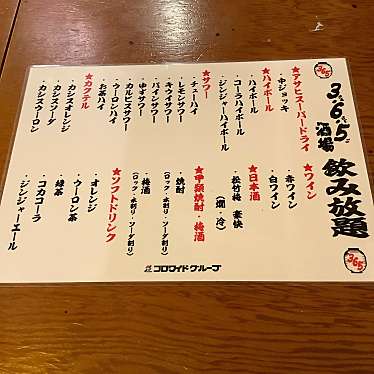 365
3・6・5
酒場
飲み放題
365
★アサヒスーパードライ
・中ジョッキ
★ハイボール
・ハイボール
・コーラハイボール
・ジンジャーハイボール
★サワー
・チューハイ
・レモンサワー
・キウイサワー
・パインサワー
・ゆずサワー
・カルピスサワー
・ウーロンハイ
・お茶ハイ
★カクテル
・カシスオレンジ
・カシスソーダ
・カシスウーロン
★ワイン
・赤ワイン
・白ワイン
★日本酒
・松竹梅 豪快
(燗・冷)
★甲類焼酎・梅酒
・焼酎
(ロック・水割り・ソーダ割り)
・梅酒
(ロック・水割り・ソーダ割り)
★ソフトドリンク
・オレンジ
・ウーロン茶
・緑茶
・コカコーラ
・ジンジャーエール
コロワイドグループ